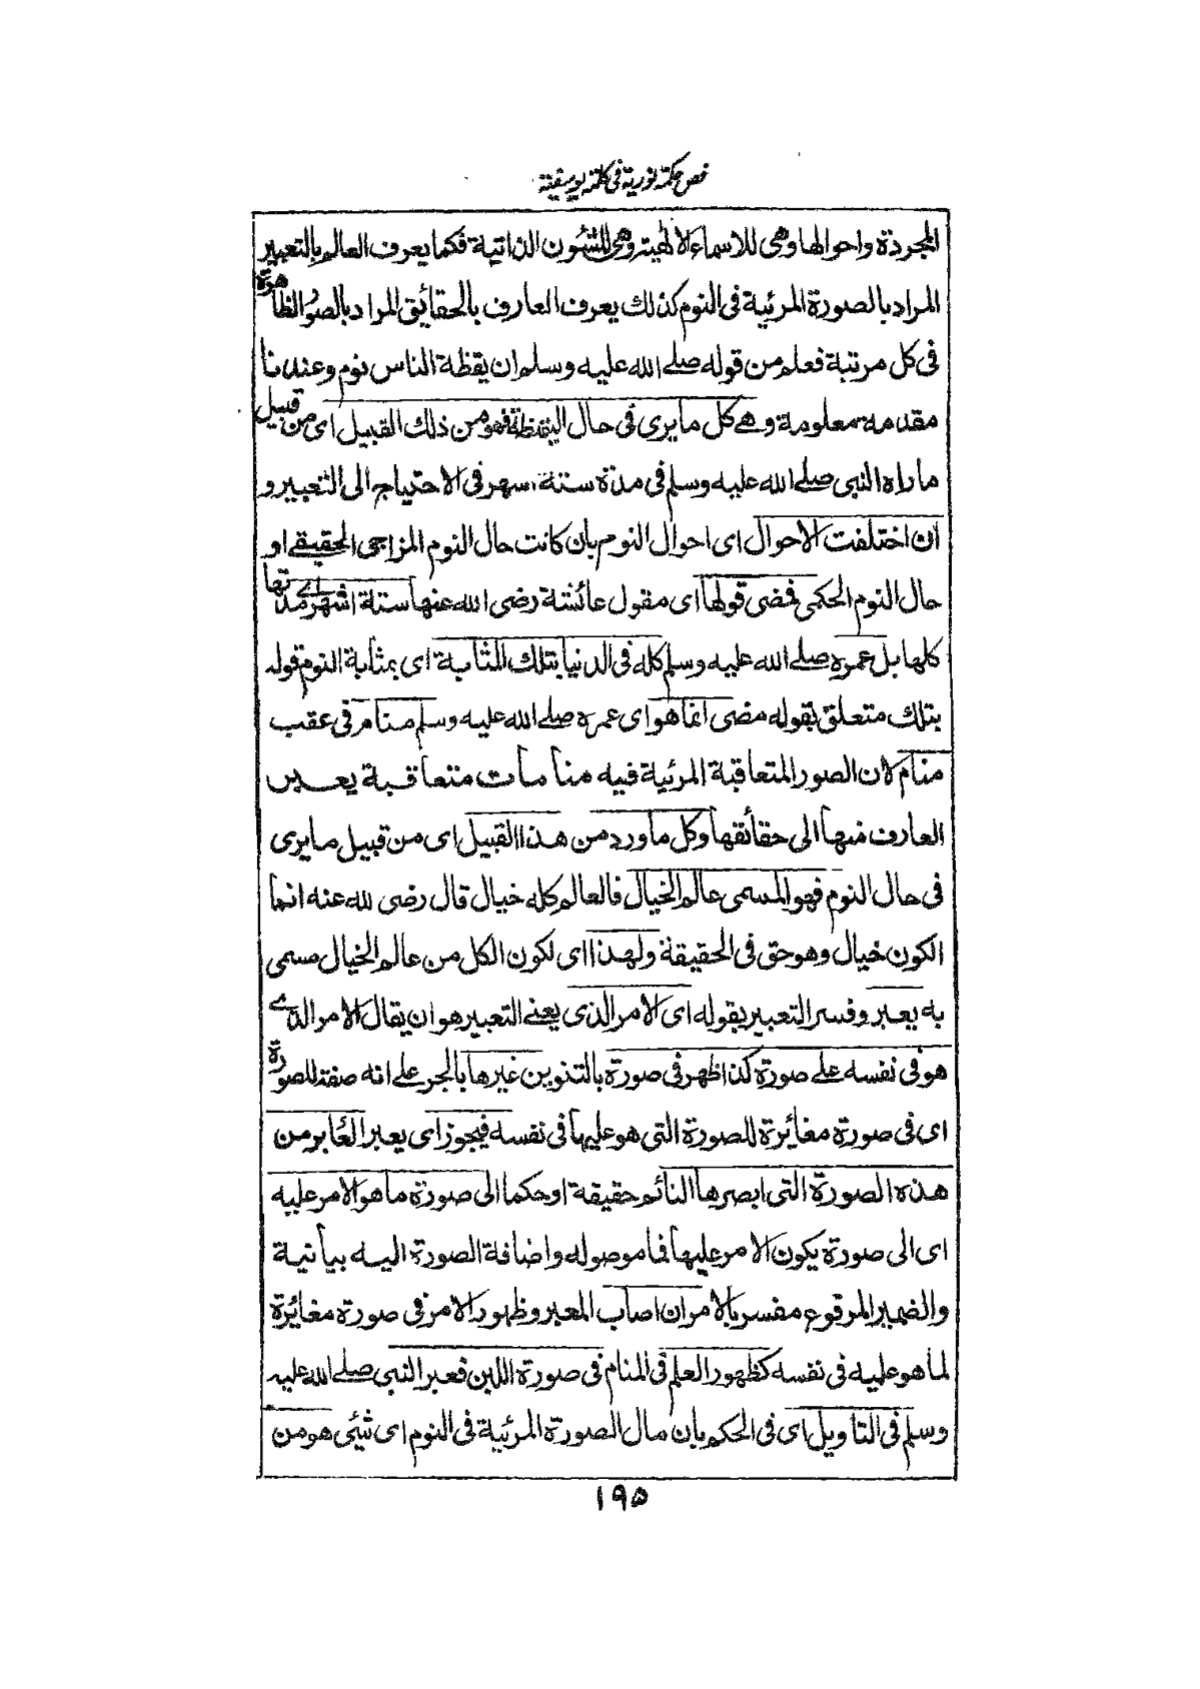 فص حكمة نورية في كلمة يوسفية
المجردة واحوالها وهى للاسماء الالهية وهى للشئون الذاتية فكما يعرف العالم بالتعبير
المراد بالصورة المرئية فى النوم كذلك يعرف العارف بالحقائق المراد بالصور الظاهرة
فى كل مرتبة فعلم من قوله صلے الله عليه وسلم ان يقظة الناس نوم وعندنا
مقدمة معلومة وهے كل ما يرى فى حال اليقظة فهو من ذلك القبيل اى من قبيل
ما راه النبى صلے الله عليه وسلم فى مدة ستة اسهر فى الاحتياج الى التعبير و
ان اختلفت الاحوال اى احوال النوم بان كانت حال النوم المزاجى الحقيقے او
حال النوم الحكمى فمضى قولها اى مقول عائشة رضى الله عنها ستة اشهر اے مدتها
كلها بل عمره صلے الله عليه وسلم كله فى الدنيا بتلك المثابة اى بمثابة النوم قوله
بتلك متعلق بقوله مضى انما هو اى عمره صلے الله عليه وسلم منام فى عقب
منام لان الصور المتعاقبة المرئية فيه منأمأت متعاقبة يعبر
العارف منها الى حقائقها وكل ما ورد من هذا القبيل اى من قبيل ما يرى
فى حال النوم فهو المسمى عالم الخيال فالعالم كله خيال قال رضى لله عنه انما
الكون خيال وهو حق فى الحقيقة ولهذا اى لكون الكل من عالم الخيال مسمى
به يعبر وفسر التعبير بقوله اى الامر الذى يعنے التعبير هو ان يقال الامر الذے
هو فى نفسه علے صورة كذا ظهر فى صورة بالتنوين غيرها بالجر علے انه صفة للصورة
اى فى صورة مغائرة للصورة التى هو عليها فى نفسه فيجوز اى يعبر العابر من
هذه الصورة التى ابصرها النائم حقيقة او حكما الى صورة ما هو الامر عليه
اى الى صورة يكون الامر عليها فما موصوله واضافة الصورة اليه بيانية
والضمير المرفوع مفسر بالامر ان اصاب المعبر وظهور الامر فى صورة مغائرة
لما هو عليه فى نفسه كظهور العلم فى المنام فى صورة اللبن فعبر النبى صلے الله عليه
وسلم فى التاويل اى فى الحكم بان مال الصورة المرئية فى النوم اى شئى هو من
۱۹۵